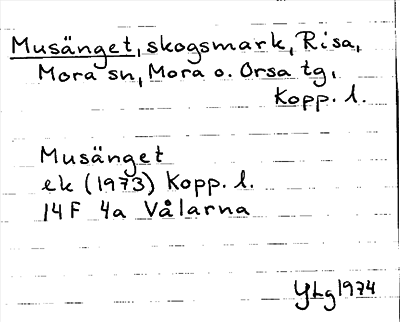 Musänget, skogsmark, Risa,
Mora sn, Mora o. Orsa tg,
Kopp. l.
Musänget
ek (1973) Kopp. l.
14F 4a Vålarna
YLg 1974